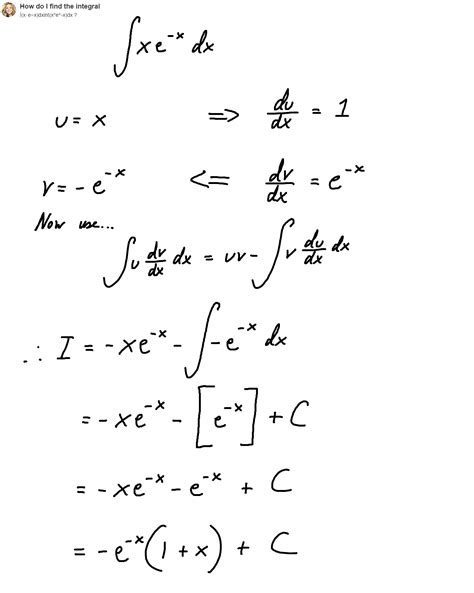 How do I find the integral
∫(x·e^-x)dx int(x*e^-x)dx ?
∫xe^-x dx
u = x => du/dx = 1
v = -e^-x <= dv/dx = e^-x
Now use...
∫u dv/dx dx = uv - ∫v du/dx dx
∴ I = -xe^-x - ∫-e^-x dx
= -xe^-x - [e^-x] + C
= -xe^-x - e^-x + C
= -e^-x(1 + x) + C